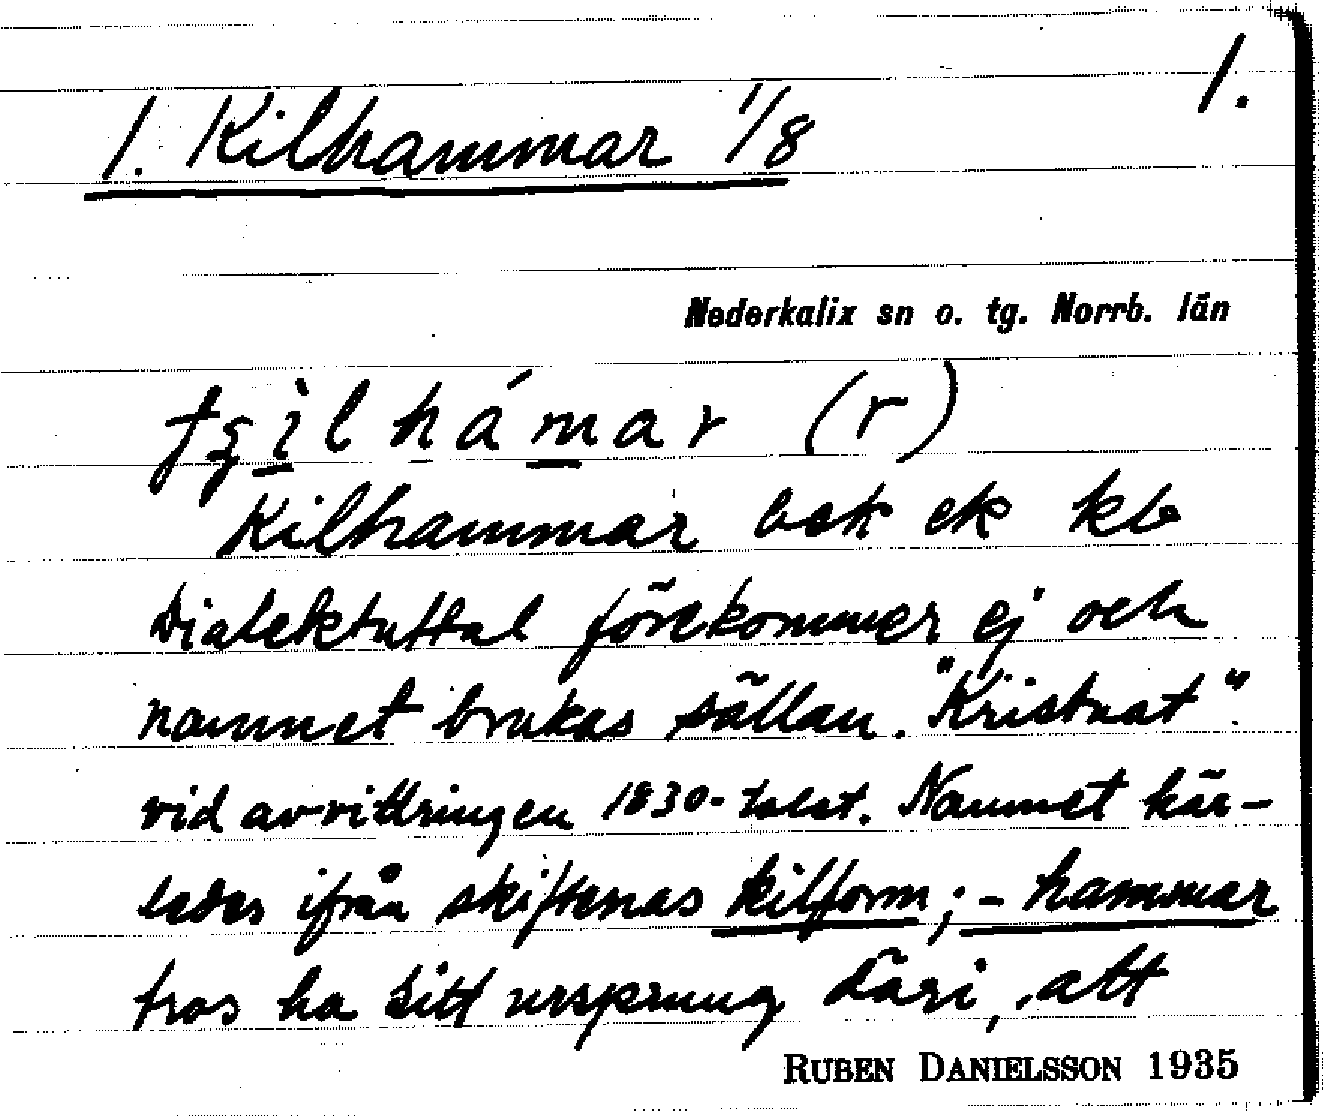 1.
1. Kilhammar 1/8
Nederkalix sn o. tg. Norrb. län
(r)
Kilhammar bsk ek kb
Dialektuttal förekommer ej och
namnet brukas sällan. "Kristnat"
vid avvittringen 1830-talet. Namnet här-
ledes ifrån skiftenas kilform; -hammar
tros ha sitt ursprung däri, att
RUBEN DANIELSSON 1935